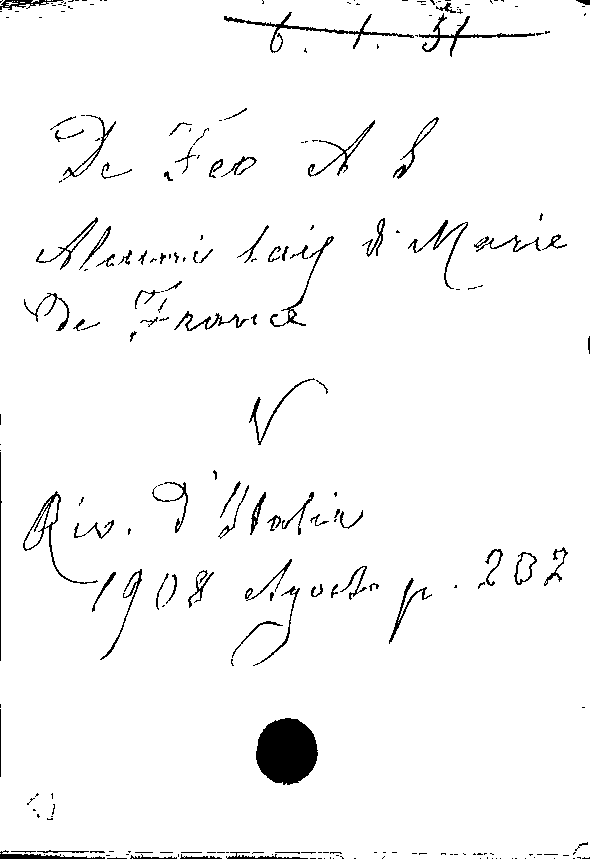 6. 1. 51
De Feo A S
Alcuni laig di Marie
De France
V
Riv. d'Italia
1908 Agosto p. 202